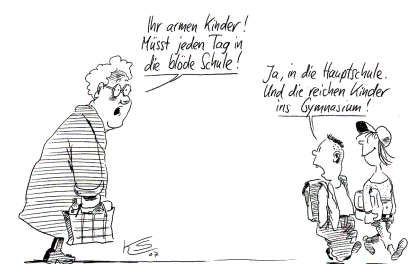 Ihr armen Kinder!
Müsst jeden Tag in
die blöde Schule!
Ja, in die Hauptschule.
Und die reichen Kinder
ins Gymnasium!
07